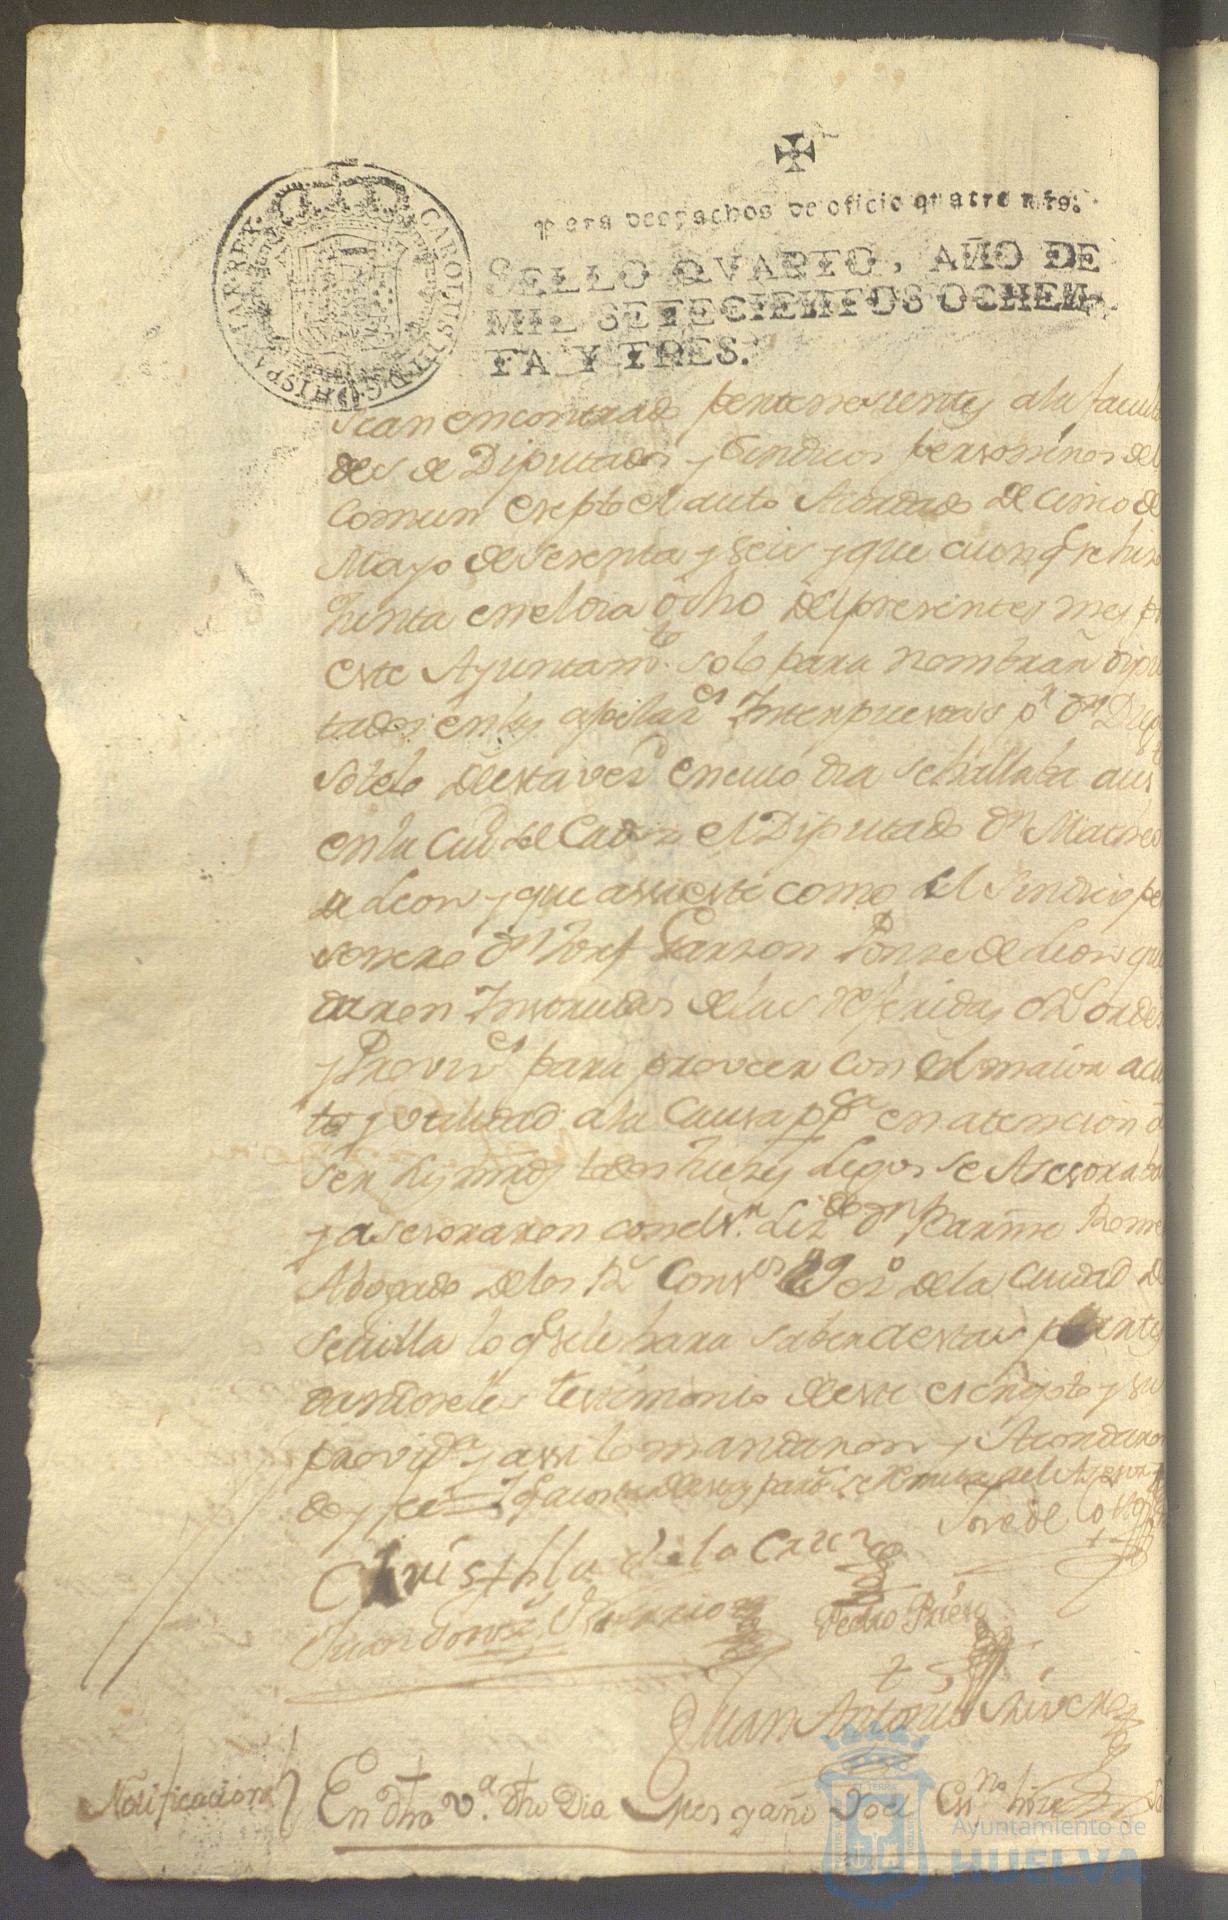 Para despachos de oficio quatro mrs.
SELLO QVARTO, AÑO DE
MIL SETECIENTOS OCHEN
TA Y TRES.
CAROLUS III D G HISPANIAR REX
sean encontrado pertenesientes a la facul
des de Diputados y Sindicos personeros del
Comun exepto el auto Acordado de cinco de
Mayo de sesenta y seis y que aunq se hiso
Junta en el dia ocho del presente mes pr
este Ayuntamto solo para nombrar dipu
tados en las apelazes Interpuestas pr dn
Sotelo desta vezd en cuio dia se hallaba aus
en la Ciud de Cadiz el Diputado Dn Matheo
de Leon y que asi este como el Sindico per
sonero Dn Josf Garzon Ponze de Leon que
daron Instruidos de las referidas Rs Orden
y Provises para proveer con el maior acier
to y utilidad a la Causa ppca en atencion a
ser sus mrds todos Juezes Legos se Asesoraban
y asesoraron con el Sr Lizdo Dn Rome
Abogado de los Rs Consos Vezo de la Ciudad de
Sevilla lo q se le hara saber a estas partes
dandoseles testimonio deste escripto y su
provida y assi lo mandaron y Acordaron
doy fee
Jose de
Christl de la Cruz
Juan Gomez
Pedro Prieto
Juan Antonio
Notificacion
En dha va dho Dia Mes y año Yo el Essno hize
Ayuntamiento de
HUELVA